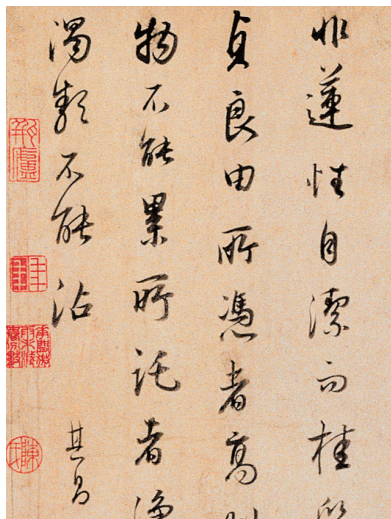 非蓮性自潔而桂
貞良由所憑者高則
物不能累所託者淨
濁類不能沾
其昌